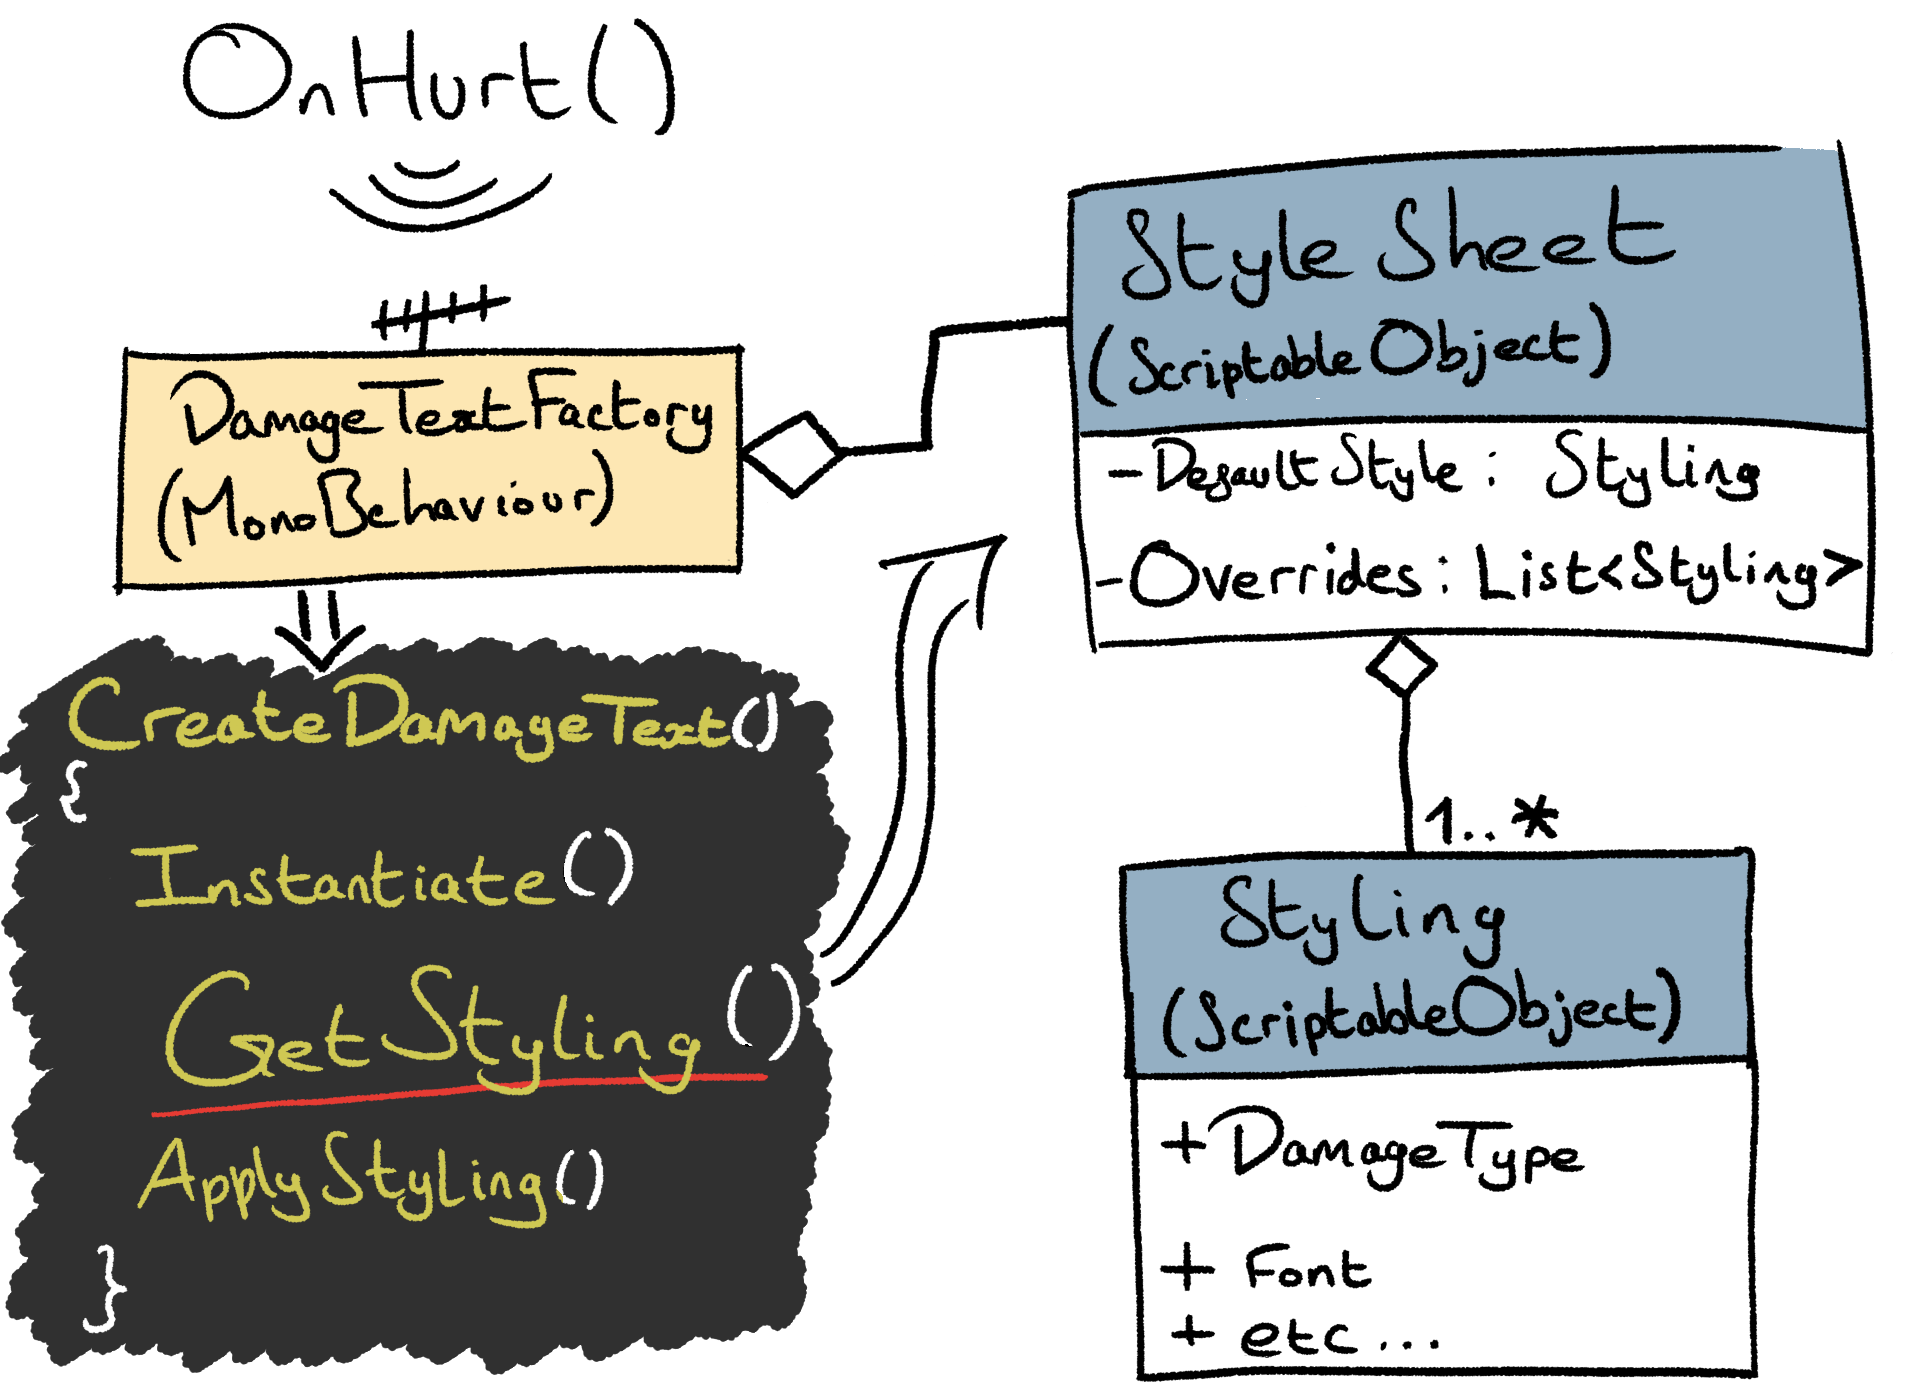 OnHurt()
DamageTextFactory
(MonoBehaviour)
CreateDamageText()
{
Instantiate()
GetStyling()
ApplyStyling()
}
StyleSheet
(ScriptableObject)
-DefaultStyle: Styling
-Overrides: List<Styling>
1..*
Styling
(ScriptableObject)
+DamageType
+ Font
+ etc...